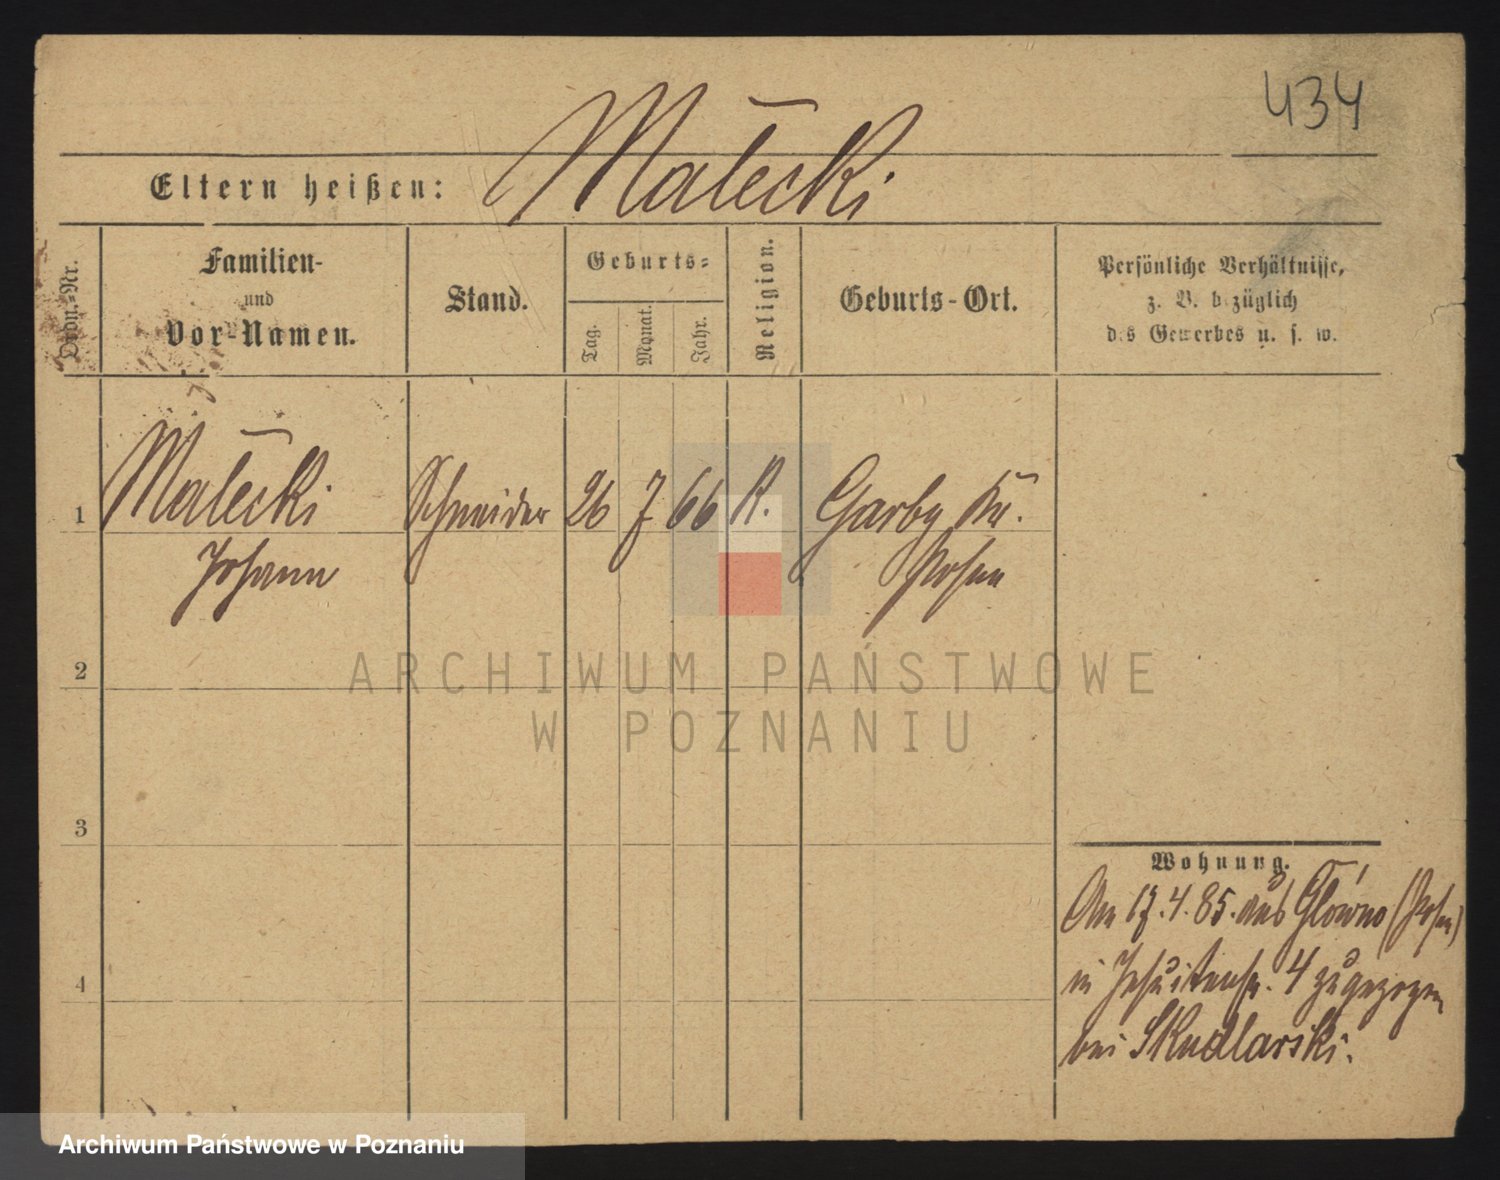 434
Małecki
Eltern heißen:
Ordn.-Nr.
Familien-
und
Vor-Namen.
Stand.
Geburts-
Tag.
Monat.
Jahr.
Religion.
Geburts-Ort.
Persönliche Verhältnisse,
z. B. bezüglich
des Gewerbes u. s. w.
1 Małecki Schneider 26 7 66 K. Garby Kr.
Johann Posen
2
3
4
Wohnung.
Am 17.4.85. aus Główno (Posen)
in Jesuitenstr. 4 zugezogen
bei Skudlarski.
ARCHIWUM PAŃSTWOWE
W POZNANIU
Archiwum Państwowe w Poznaniu